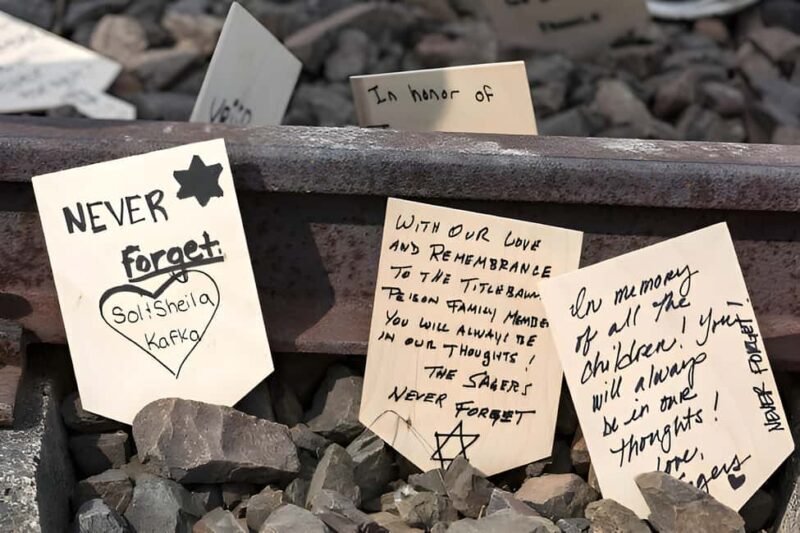 In honor of
NEVER
forget.
Sol+Sheila
Kafka
WITH OUR LOVE
AND REMEMBRANCE
TO THE TITLEBAUM
PEISON FAMILY MEMBE
YOU WILL ALWAYS BE
IN OUR THOUGHTS!
THE SAGERS
NEVER FORGET
In memory
of all the
children! You
will always
be in our
thoughts!
love,
NEVER FORGET!